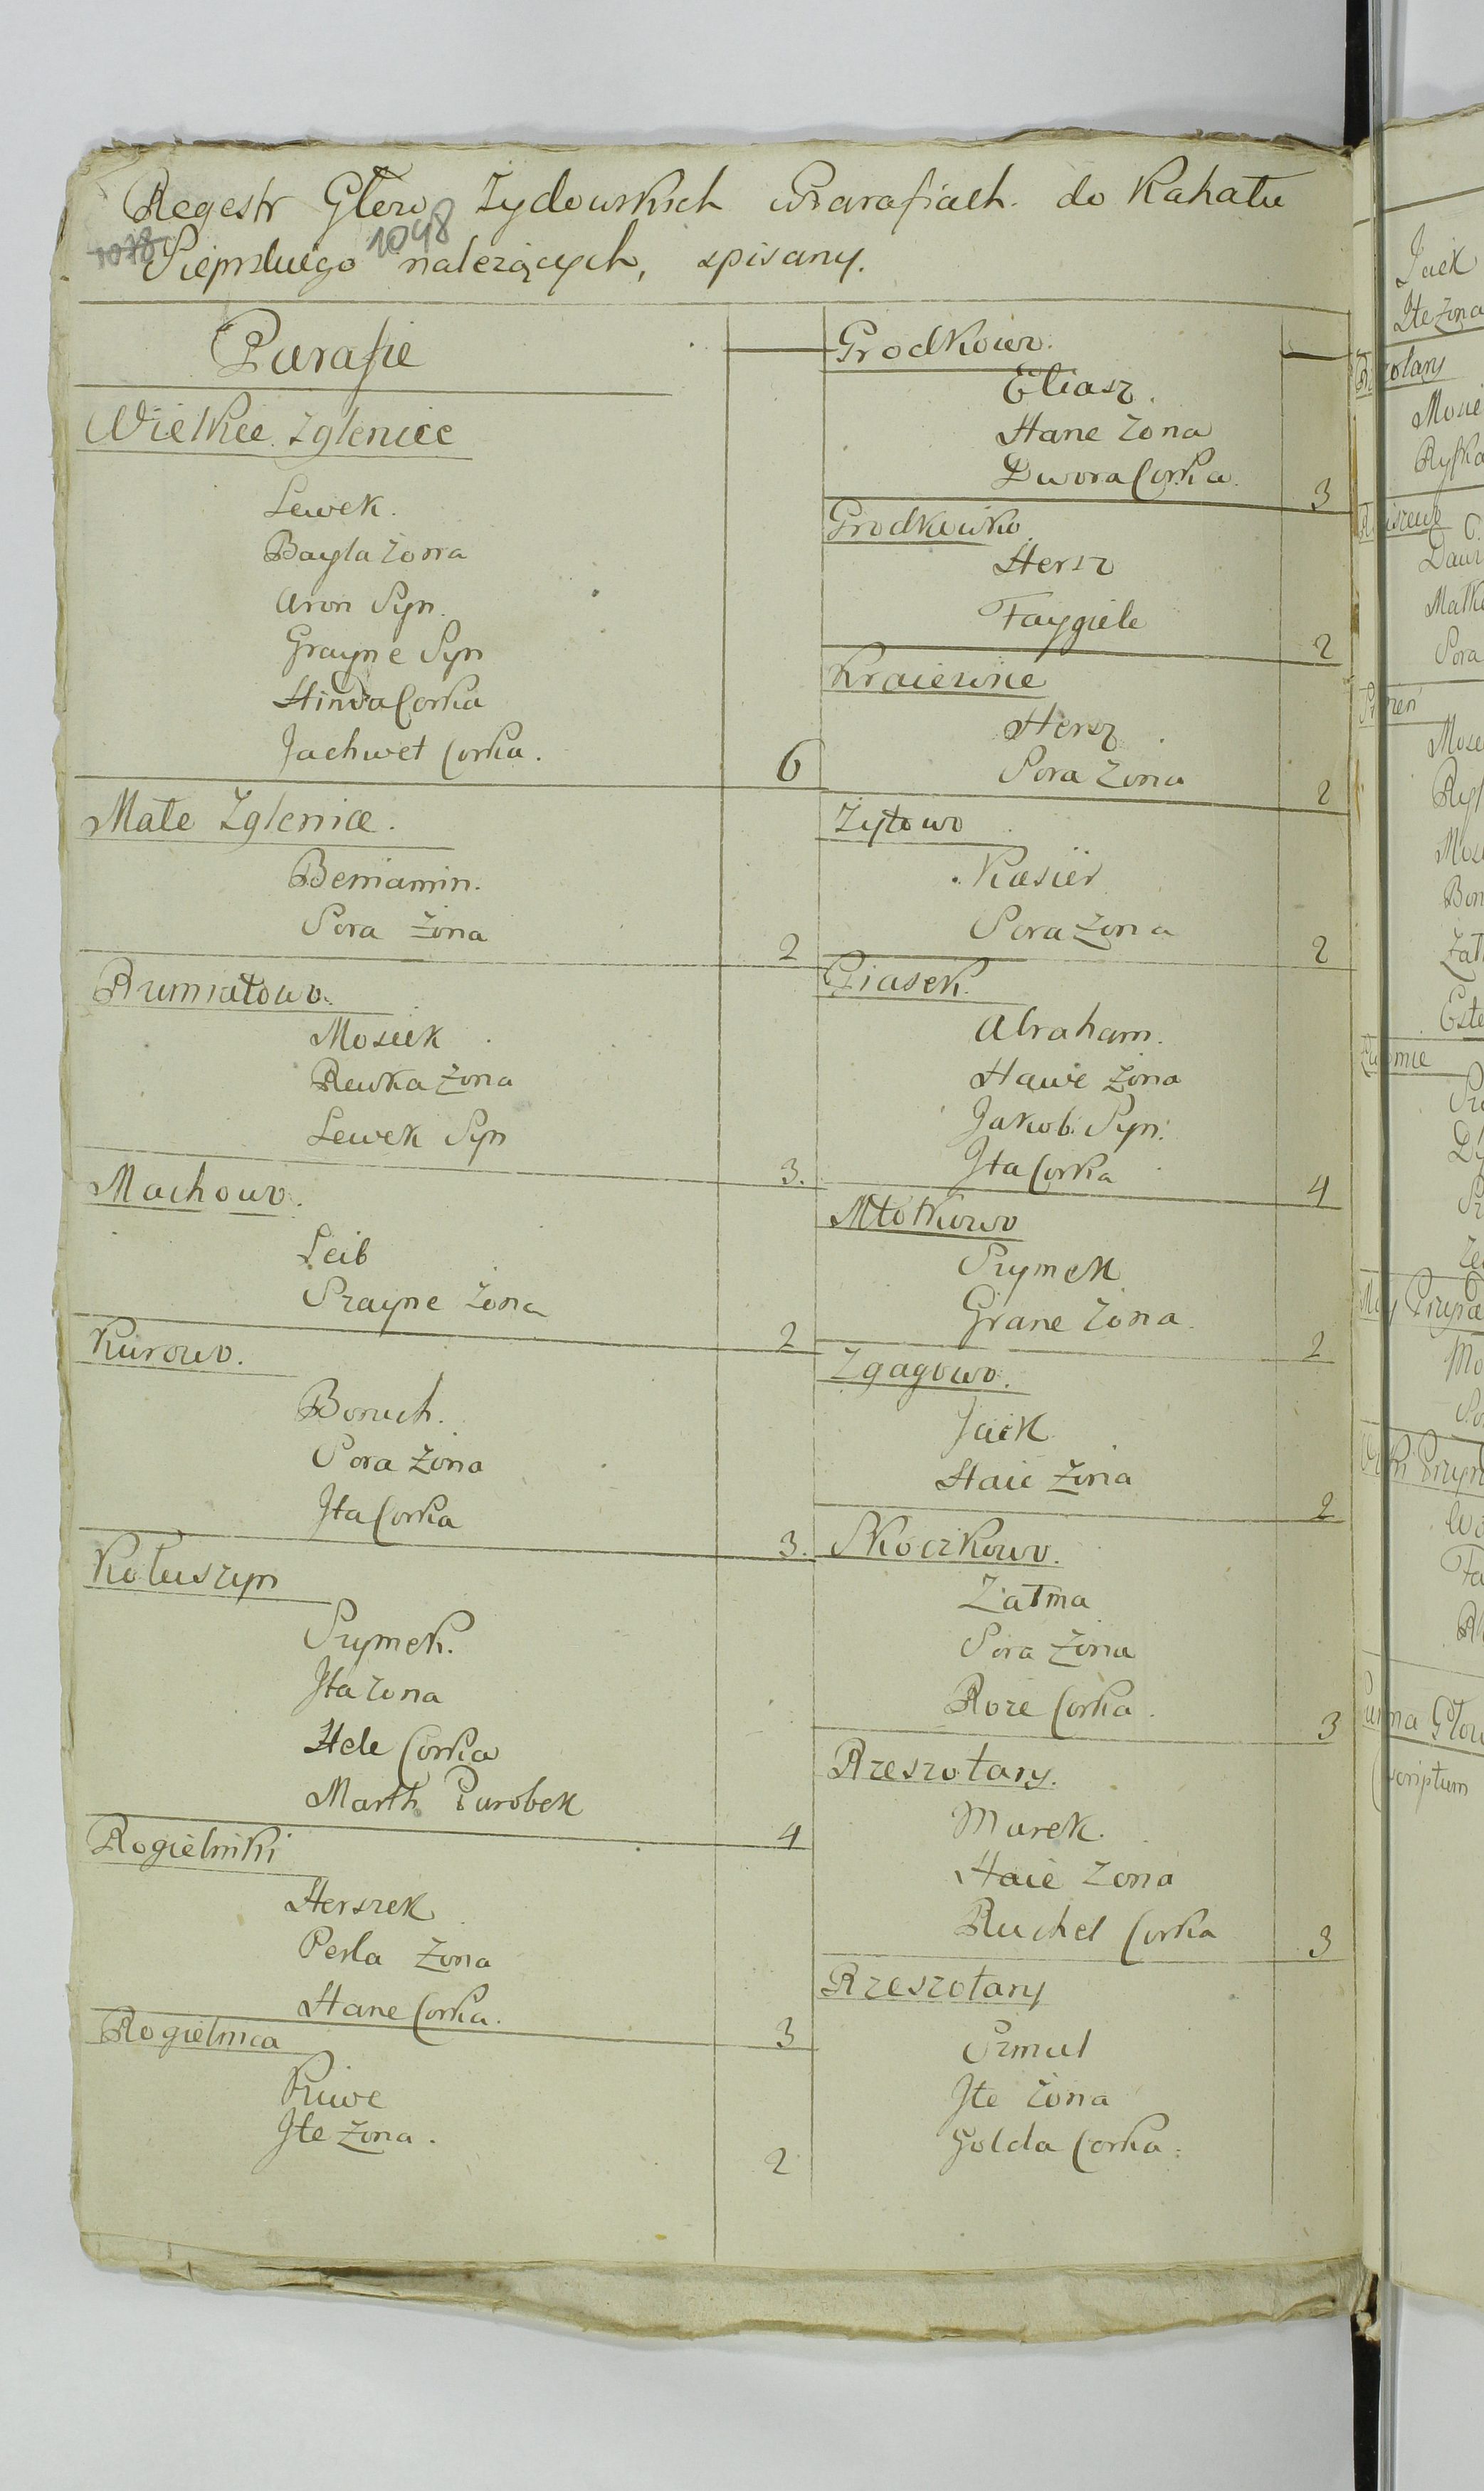 Regestr Głow Zydowskich w Parafiach do Kahału
1078 1048
Sieprskiego należących, spisany.
Parafie
Wielkie Zglenice
Lewek.
Bayla Zona
Aron Syn.
Grayne Syn
Hinda Corka
Jachwet Corka.
6
Małe Zglenice.
Beniamin.
Sora Zona
2
Rumiatowo.
Mosiek
Rewka Zona
Lewek Syn
3.
Machowo.
Leib
Szayne Zona
2
Kurowo.
Boruch.
Sora Zona
Jta Corka
3.
Kołuszyn
Szymek.
Jta Zona
Hele Corka
Marth Parobek
4
Rogielniki
Herszek
Perla Zona
Hane Corka.
3
Rogielnica
Ruwe
Jte Zona.
2
Grodkowo.
Eliasz.
Hane Zona
Dwora Corka.
3
Grodkowko
Hersz
Faygiele
2
Kraiewice
Hersz
Sora Zona
2
Zytowo
Kasiier
Sora Zona
2
Piasek.
Abraham.
Hawe Zona
Jakob. Syn.
Jta Corka
4
Młotkowo
Szymek
Grane Zona.
2
Zgagowo.
Jaik
Haie Zona
2
Skoczkowo.
Załma
Sora Zona
Roze Corka.
3
Rzeszotary.
Marek.
Haie Zona
Ruchel Corka
3
Rzeszotary
Szmul
Jte Zona
Golda Corka.
Jaek
Jte Zona
Ryfka
Sora
scriptum